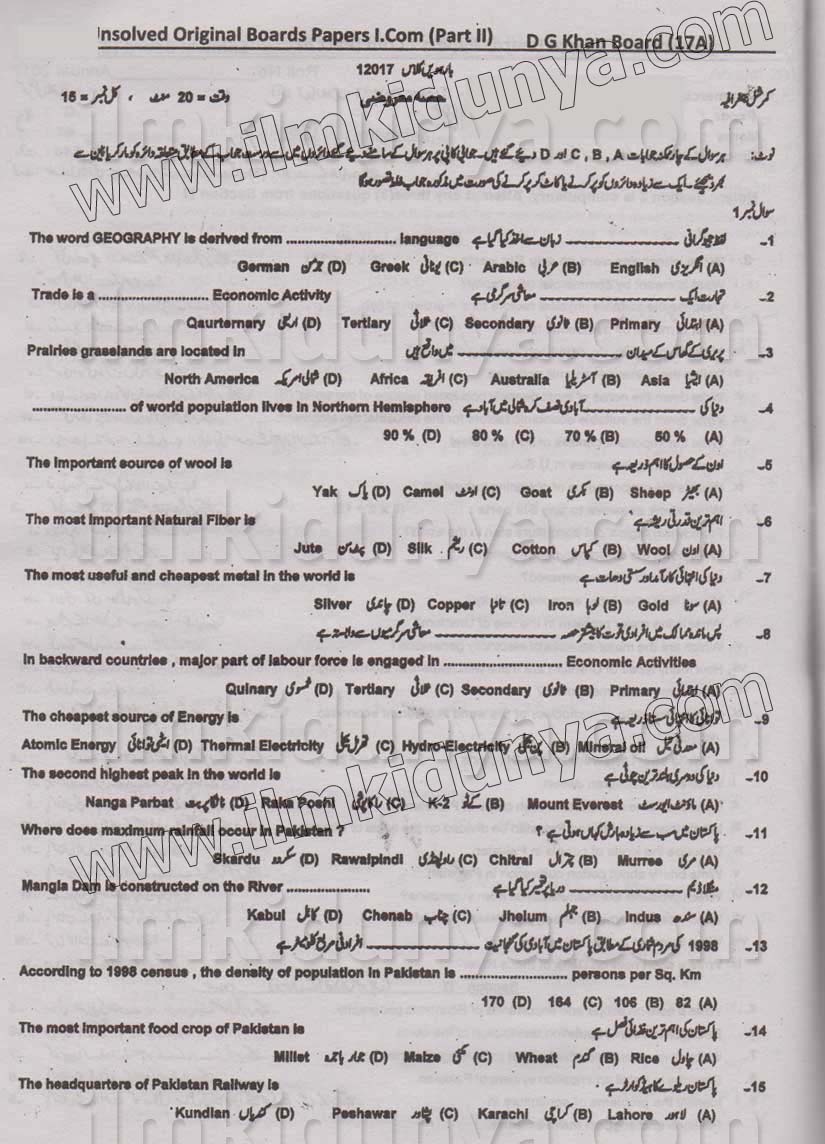 Insolved Original Boards Papers I.Com (Part II) D G Khan Board (17A)
بارہویں کلاس 12017
کمرشل جغرافیہ حصہ معروضی وقت = 20 منٹ ، کل نمبر = 15
نوٹ: ہر سوال کے چار ممکنہ جوابات C , B , A اور D دیئے گئے ہیں۔ جوابی کاپی پر ہر سوال کے سامنے دیئے گئے دائروں میں سے درست جواب کے مطابق متعلقہ دائرہ کو مارکر یا پین سے
بھر دیجئے۔ ایک سے زیادہ دائروں کو پر کرنے یا کاٹ کر پر کرنے کی صورت میں مذکورہ جواب غلط تصور ہوگا
سوال نمبر 1
1- لفظ جیوگرافی ............ زبان سے اخذ کیا گیا ہے The word GEOGRAPHY is derived from ............ language
(A) انگریزی English (B) عربی Arabic (C) یونانی Greek (D) جرمن German
2- تجارت ایک ............ معاشی سرگرمی ہے Trade is a ............ Economic Activity
(A) ابتدائی Primary (B) ثانوی Secondary (C) ثلاثی Tertiary (D) اربعی Qaurternary
3- پریری کے گھاس کے میدان ............ میں واقع ہیں Prairies grasslands are located in
(A) ایشیا Asia (B) آسٹریلیا Australia (C) افریقہ Africa (D) شمالی امریکہ North America
4- دنیا کی ............ آبادی نصف کرہ شمالی میں آباد ہے ............ of world population lives in Northern Hemisphere
(A) 50 % (B) 70 % (C) 80 % (D) 90 %
5- اون کے حصول کا اہم ذریعہ ہے The important source of wool is
(A) بھیڑ Sheep (B) بکری Goat (C) اونٹ Camel (D) یاک Yak
6- اہم ترین قدرتی ریشہ ہے The most important Natural Fiber is
(A) اون Wool (B) کپاس Cotton (C) ریشم Silk (D) پٹ سن Jute
7- دنیا کی انتہائی کارآمد اور سستی دھات ہے The most useful and cheapest metal in the world is
(A) سونا Gold (B) لوہا Iron (C) تانبا Copper (D) چاندی Silver
8- پس ماندہ ممالک میں افرادی قوت کا بیشتر حصہ ............ معاشی سرگرمیوں سے وابستہ ہے
In backward countries , major part of labour force is engaged in ............ Economic Activities
(A) ابتدائی Primary (B) ثانوی Secondary (C) ثلاثی Tertiary (D) خمسوی Quinary
9- توانائی کا انتہائی سستا ذریعہ ہے The cheapest source of Energy is
(A) معدنی تیل Mineral oil (B) پن بجلی Hydro-Electricity (C) تھرمل بجلی Thermal Electricity (D) ایٹمی توانائی Atomic Energy
10- دنیا کی دوسری بلند ترین چوٹی ہے The second highest peak in the world is
(A) ماؤنٹ ایورسٹ Mount Everest (B) کے ٹو K-2 (C) راکاپوشی Raka Poshi (D) نانگا پربت Nanga Parbat
11- پاکستان میں سب سے زیادہ بارش کہاں ہوتی ہے ؟ Where does maximum rainfall occur in Pakistan ?
(A) مری Murree (B) چترال Chitral (C) راولپنڈی Rawalpindi (D) سکردو Skardu
12- منگلا ڈیم ............ دریا پر تعمیر کیا گیا ہے Mangla Dam is constructed on the River ............
(A) سندھ Indus (B) جہلم Jhelum (C) چناب Chenab (D) کابل Kabul
13- 1998 کی مردم شماری کے مطابق پاکستان میں آبادی کی گنجانیت ............ افراد فی مربع کلومیٹر ہے
According to 1998 census , the density of population in Pakistan is ............ persons per Sq. Km
(A) 82 (B) 106 (C) 164 (D) 170
14- پاکستان کی اہم ترین غذائی فصل ہے The most important food crop of Pakistan is
(A) چاول Rice (B) گندم Wheat (C) مکئی Maize (D) جوار باجرہ Millet
15- پاکستان ریلوے کا ہیڈ کوارٹر ہے The headquarters of Pakistan Railway is
(A) لاہور Lahore (B) کراچی Karachi (C) پشاور Peshawar (D) کندیاں Kundian
www.ilmkidunya.com
www.ilmkidunya.com
ilmkidunya.com
ilmkidunya.com
ilmkidunya.com
ilmkidunya.com
ilmkidunya.com